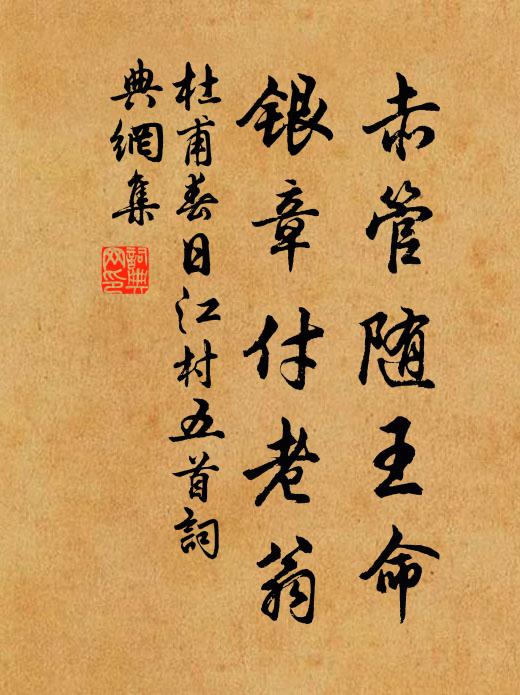 赤管随王命
银章付老翁
杜甫春日江村五首詞
典網集
詞典
网印